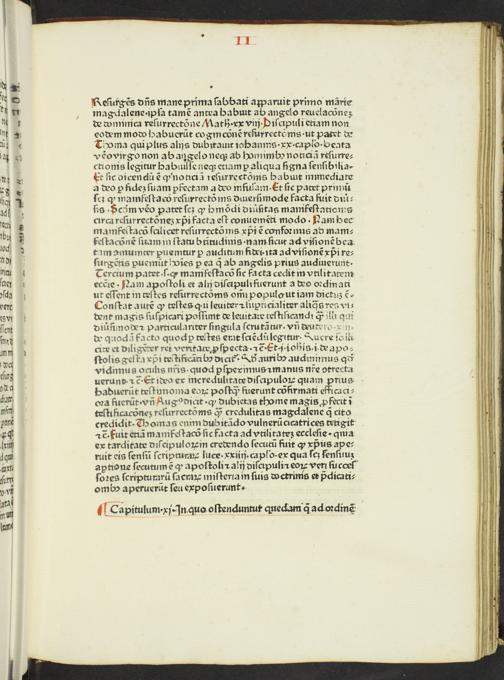 II
Resurgēs dn̄s mane prima sabbati apparuit primo marie
magdalene·ipsa tamē antea habuit ab angelo reuelacōneȝ
de dominica resurrectōne Math·xxviij·Discipuli etiam non
eodem modo habuerūt cognicōnē resurrectōnis·ut patet de
Thoma qui plus alijs dubitauit iohannis·xx·caplo·beata
vēo virgo non ab angelo neqȝ ab hominibȝ noticiā resurre-
ctionis legitur habuisse neqȝ etiam ꝑ aliqua signa sensibilia·
Et sic dicendū ē qꝫ noticiā resurrectōnis habuit immediate
a deo ꝑ fidei suam ꝑfectam a deo infusam·Et sic patet primū
scꝫ qꝫ manifestacō resurrectōnis diuersimode facta fuit diu-
sis·Scd̄m vēo patet scꝫ qꝫ hmōdi diūsitas manifestationis
circa resurrectōneȝ xp̄i facta est conuenienti modo·Nam hec
manifestacō scilicet resurrectōnis xp̄i ē conformis ab mani-
festacōnē suam in statu bt̄itudinis·nam sicut ad visionē bea
tam
surgētis pueniūt hōies ꝑ ea q̄ ab angelis prius audiuerunt·
Tercium patet·s·qꝫ manifestacō sic facta cedit in vtilitatem
eccīe·Nam apostoli et alij discipuli fuerunt a deo ordinati
ut essent in testes resurrectōnis om̄i populo ut iam dictuȝ ē·
Constat autē qꝫ testes qui leuiter et supficialiter aliqua res vi-
dent magis suspicari possunt de leuitate testificandi qꝫ illi qui
diutissime et particulariter singula scrutātur·vn̄ deutero·xiij·
de quodā facto quod ꝑ testes erat sciēdū legitur·Quere solli
cite et diligēter rei veritate ꝑspecta·⁊c̄·Et·j·iohīs·j·de apo-
stolis gesta xp̄i testificātibȝ dicit̄·Qd̄ auribȝ audiuimus qd̄
vidimus oculis nr̄is·quod ꝑspeximꝰ ⁊ manus nr̄e cōtrecta
uerunt·⁊c̄·Et ideo ex incredulitate discipuloꝝ quam prius
habuerūt testimonia eoꝝ postqꝫ fuerunt cōfirmati efficaci-
ora fuerūt·vn̄ Augꝰ dicit·qꝫ dubietas thome magis ꝑfecit ī
testificacōneȝ resurrectōnis qꝫ credulitas magdalene q̄ cito
credidit·Thomas enim dubitādo vulnerū cicatrices tetigit
⁊c̄·Fuit etiā manifestacō sic facta ad vtilitateȝ ecclesie·quia
ex tarditate discipuloꝝ in credendo secutū fuit qꝫ xp̄us ape-
ruit eis sensū scripturaꝝ luce·xxiiij·caplo·ex qua scꝫ sensuū
aptione secutum ē qꝫ apostoli ⁊ alij discipuli ⁊ eoꝝ veri succes-
sores scripturarū sacraꝝ misteria in suis doctrinis et p̄dicati-
onibȝ aperuerūt seu exposuerunt·
Capitulum·xj·In quo ostenduntur quedam q̄ ad ordinē